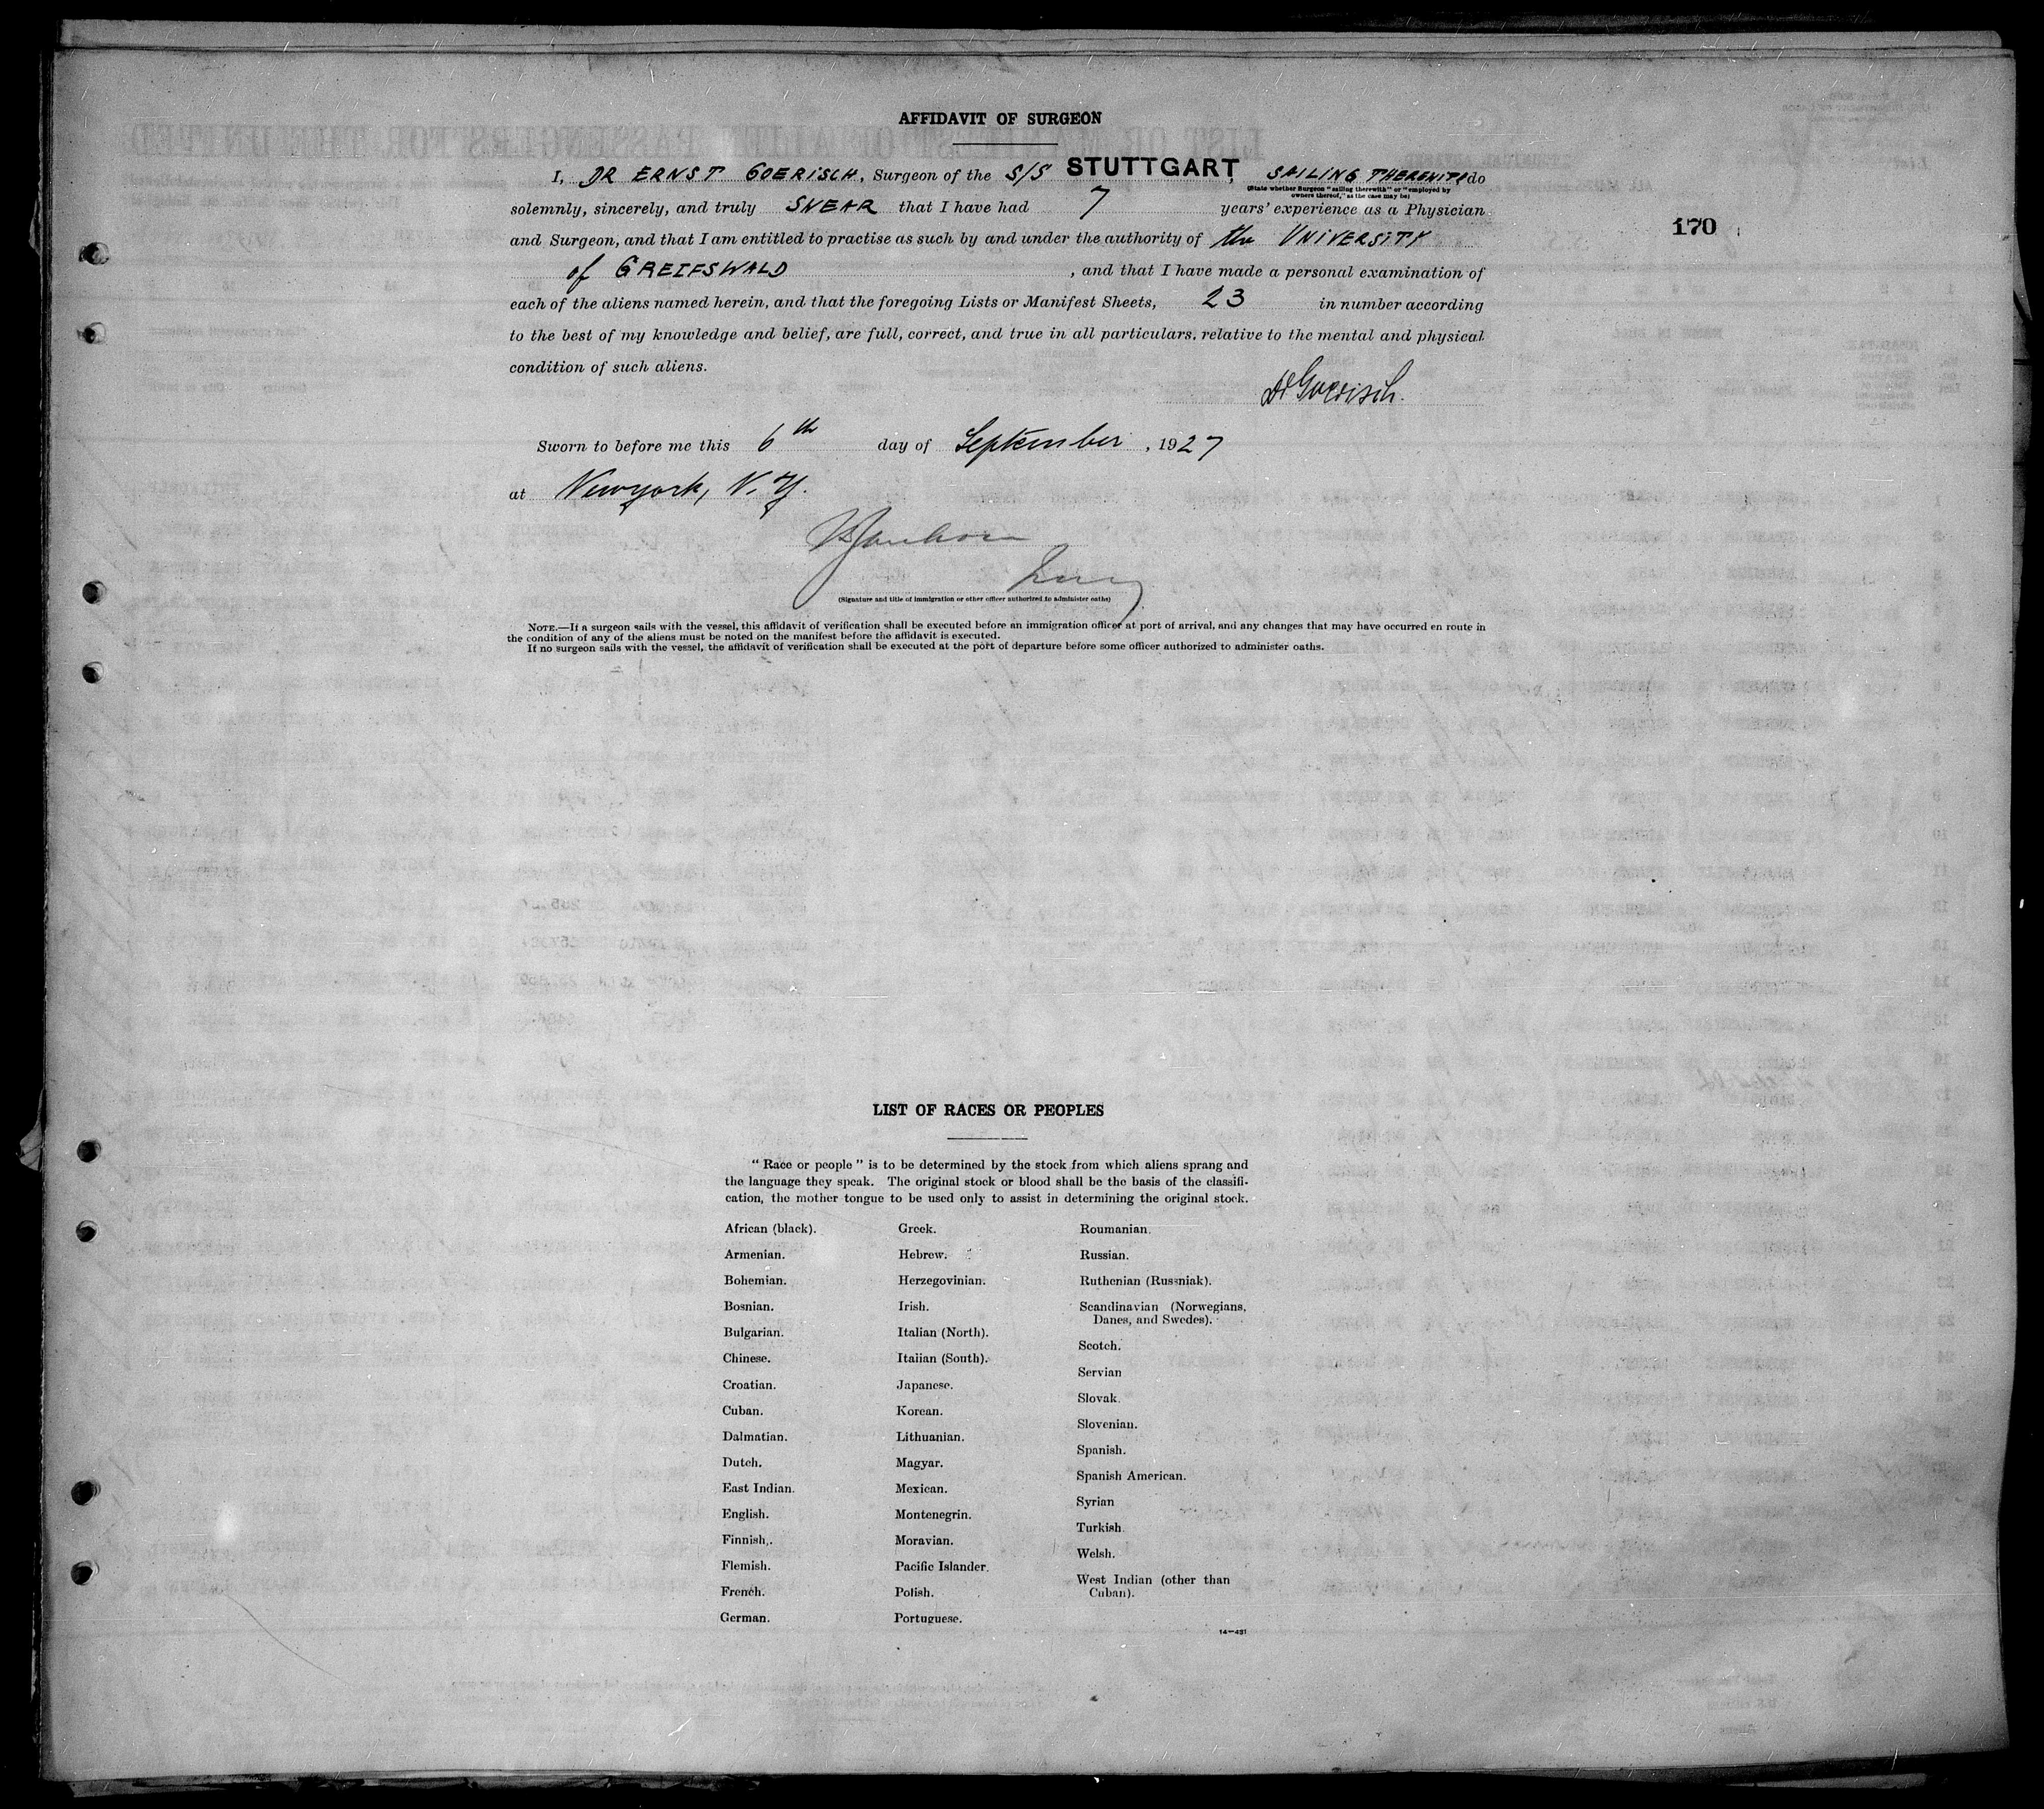 AFFIDAVIT OF SURGEON
I, DR ERNST GOERISCH, Surgeon of the S/S STUTTGART, SAILING THEREWITH do
(State whether Surgeon "sailing therewith" or "employed by
owners thereof," as the case may be)
solemnly, sincerely, and truly SWEAR that I have had 7 years' experience as a Physician
170
and Surgeon, and that I am entitled to practise as such by and under the authority of the UNIVERSITY
of GREIFSWALD, and that I have made a personal examination of
each of the aliens named herein, and that the foregoing Lists or Manifest Sheets, 23 in number according
to the best of my knowledge and belief, are full, correct, and true in all particulars, relative to the mental and physical
condition of such aliens.
Dr Goerisch.
Sworn to before me this 6th day of September, 1927
at Newyork, N.Y.
(Signature and title of immigration or other officer authorized to administer oaths)
NOTE.—If a surgeon sails with the vessel, this affidavit of verification shall be executed before an immigration officer at port of arrival, and any changes that may have occurred en route in
the condition of any of the aliens must be noted on the manifest before the affidavit is executed.
If no surgeon sails with the vessel, the affidavit of verification shall be executed at the port of departure before some officer authorized to administer oaths.
LIST OF RACES OR PEOPLES
"Race or people" is to be determined by the stock from which aliens sprang and
the language they speak. The original stock or blood shall be the basis of the classifi-
cation, the mother tongue to be used only to assist in determining the original stock.
African (black).
Armenian.
Bohemian.
Bosnian.
Bulgarian.
Chinese.
Croatian.
Cuban.
Dalmatian.
Dutch.
East Indian.
English.
Finnish.
Flemish.
French.
German.
Greek.
Hebrew.
Herzegovinian.
Irish.
Italian (North).
Italian (South).
Japanese.
Korean.
Lithuanian.
Magyar.
Mexican.
Montenegrin.
Moravian.
Pacific Islander.
Polish.
Portuguese.
Roumanian.
Russian.
Ruthenian (Russniak).
Scandinavian (Norwegians,
Danes, and Swedes).
Scotch.
Servian
Slovak.
Slovenian.
Spanish.
Spanish American.
Syrian
Turkish.
Welsh.
West Indian (other than
Cuban).
14—431